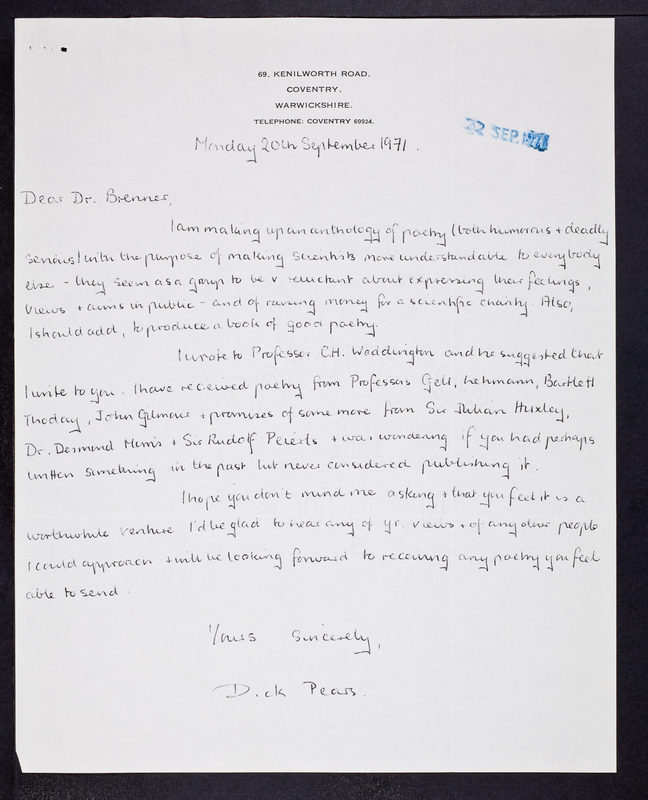 69, KENILWORTH ROAD,
COVENTRY,
WARWICKSHIRE.
TELEPHONE: COVENTRY 69924.
22 SEP. 1971
Monday 20th September 1971.
Dear Dr. Brenner,
I am making up an anthology of poetry (both humorous + deadly
serious) with the purpose of making scientists more understandable to everybody
else - they seem as a group to be v reluctant about expressing their feelings,
views + aims in public - and of raising money for a scientific charity. Also,
I should add, to produce a book of good poetry.
I wrote to Professor C.H. Waddington and he suggested that
I write to you. I have received poetry from Professors Gell, Lehmann, Bartlett
Thoday, John Gilmour + promises of some more from Sir Julian Huxley,
Dr. Desmond Morris + Sir Rudolf Peierls + was wondering if you had perhaps
written something in the past but never considered publishing it.
I hope you don't mind me asking + that you feel it is a
worthwhile venture. I'd be glad to hear any of yr. views + of any other people
I could approach + will be looking forward to receiving any poetry you feel
able to send.
Yours Sincerely,
Dick Pears.